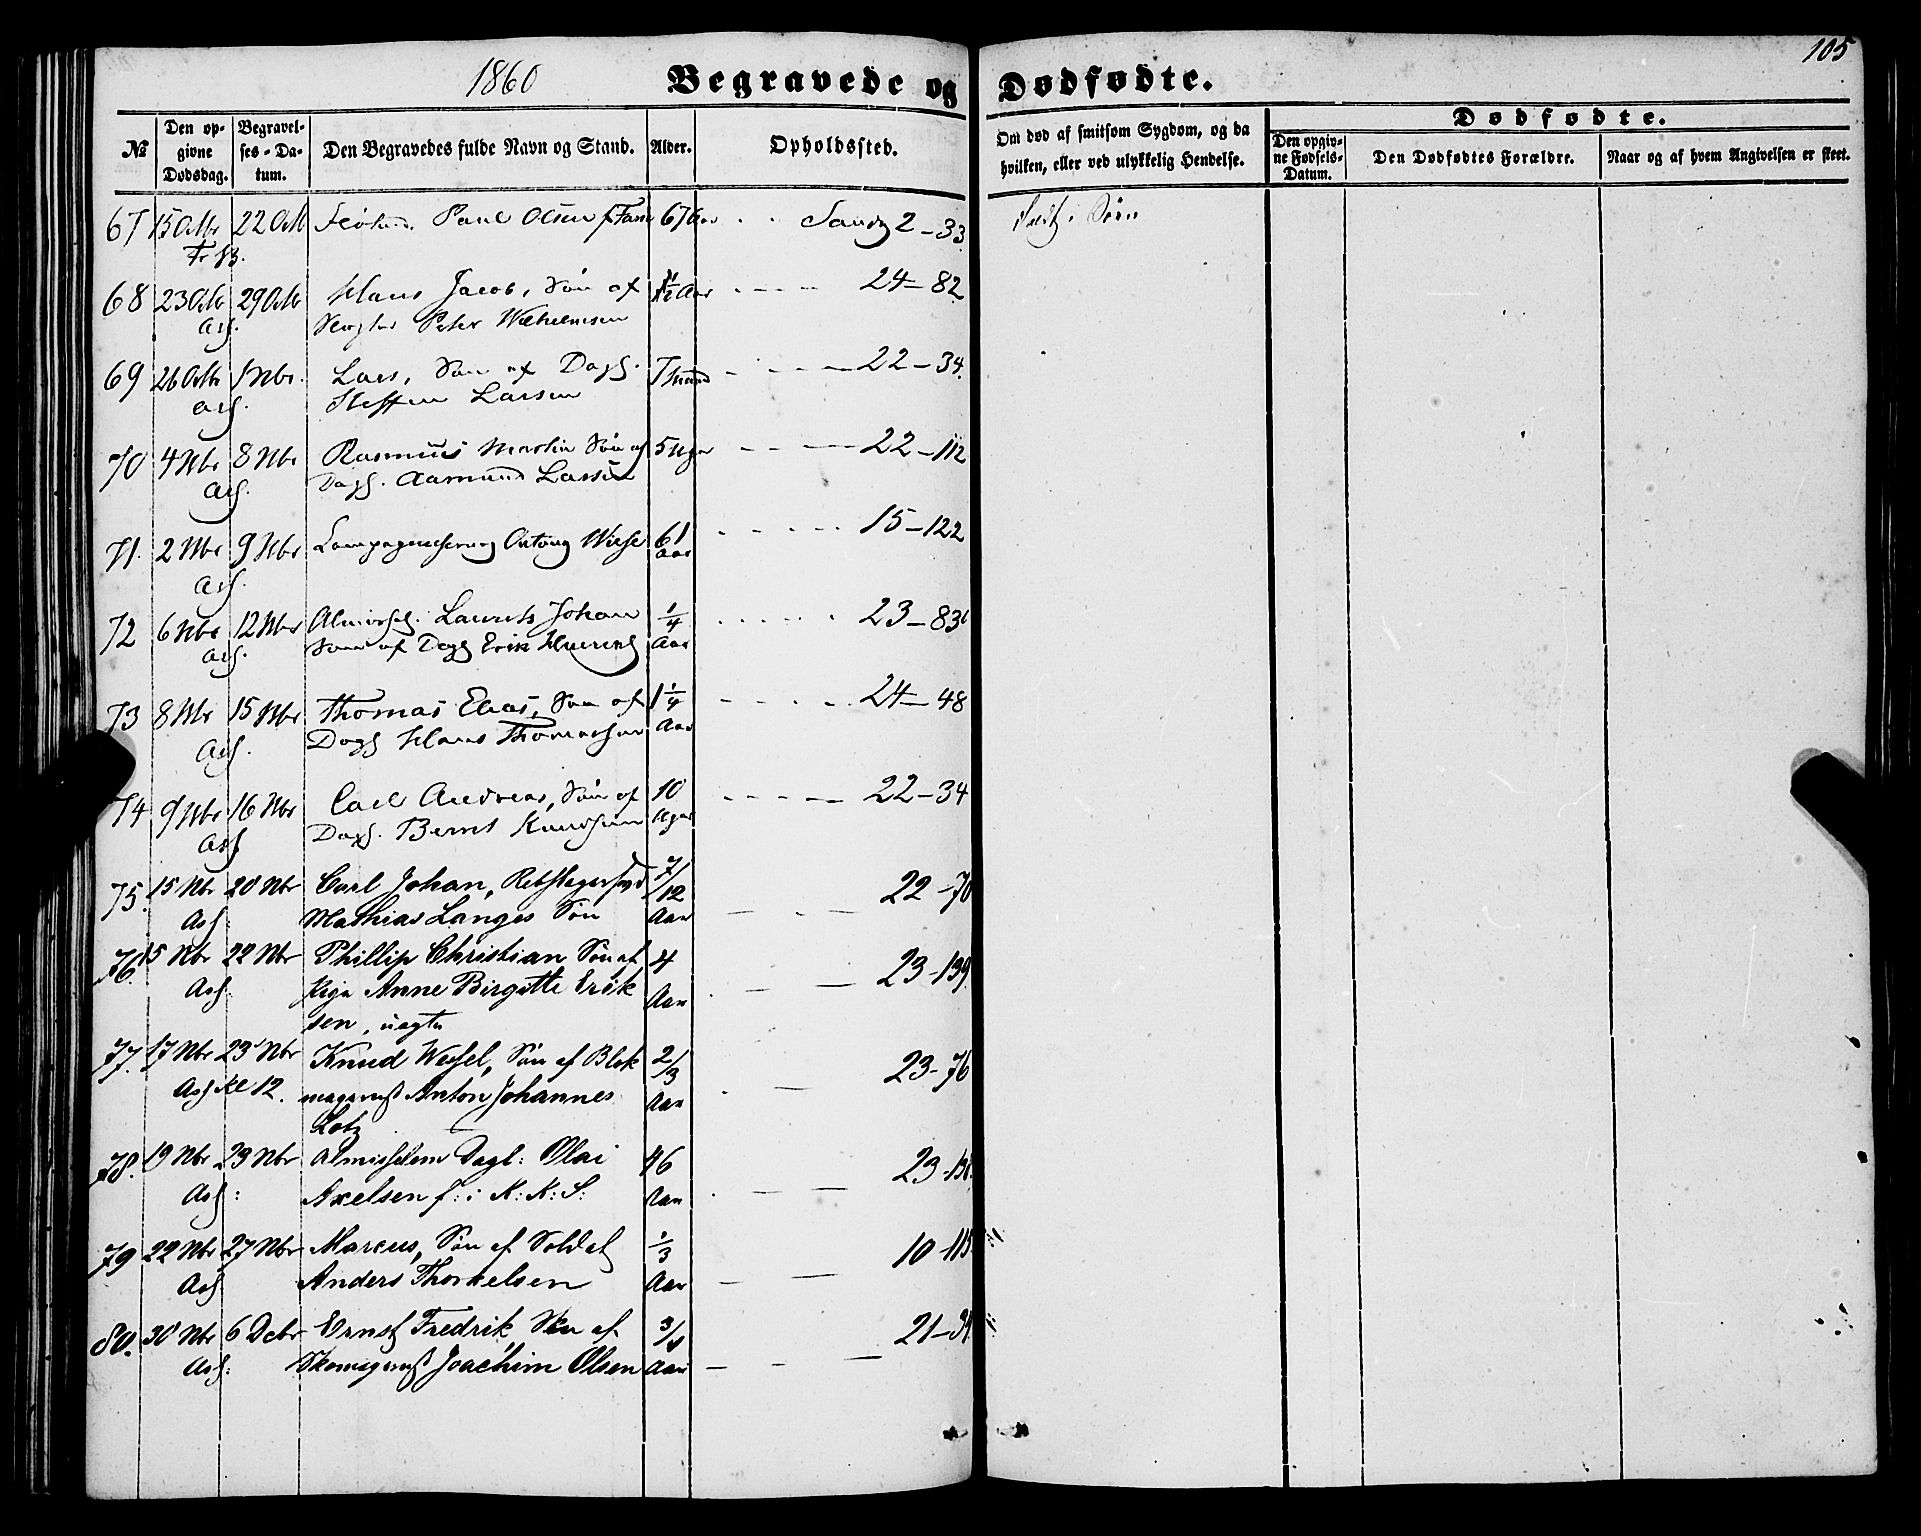 105
1860 Begravede og Dødfødte.
№ Den opgivne Dødsdag. Begravelses-Datum. Den Begravedes fulde Navn og Stand. Alder. Opholdssted. Om død af smitsom Sygdom, og da hvilken, eller ved ulykkelig Hendelse. Dødfødte.
Den opgivne Fødsels-Datum. Den Dødfødtes Forældre. Naar og af hvem Angivelsen er skeet.
67 15 Octbr 22 Octb Paul Olsen 67 Aar Sandv 2-33 i Søen
68 23 Octb 29 Octb Klaus Jacob, Søn af 1½ Aar 24-82
Peter Wilhelmsen
69 26 Octbr 1 Nbr. Lars, Søn af Dagl. 7 Maand 22-34.
Steffen Larsen
70 4 Nbr 8 Nbr Rasmus Martin Søn af 5 Uger 22-112
Dagl. Aamund Larsen
71. 2 Nbr 9 Nbr 61 Aar 15-122
72 6 Nbr 12 Nbr Laurits Johan ¼ Aar 23-83
Søn af Dagl Erik
73 8 Nbr 15 Nbr Thomas Elias, Søn af 1¼ Aar 24-48
Dagl Klaus Thomassen
74 9 Nbr 16 Nbr Carl Andreas, Søn af 10 Uger 22-34
Dagl. Bernt Knudsen
75. 15 Nbr 20 Nbr Carl Johan, Rebslagersvd 7/12 Aar 22-70
Ass: Mathias Langes Søn
76. 15 Nbr 22 Nbr Phillip Christian Søn af 4 Aar 23-139
Ass: Pige Anne Birgitte Erik
sen, uægte
77. 17 Nbr 23 Nbr Knud Wessel, Søn af Blok 2/3 Aar 23-76
Ass Kl 12. magerms Anton Johannes
Lotz
78. 19 Nbr 23 Nbr Almisselem Dagl: Olai 46 Aar
Ass: Axelsen f: i K: K: S:
79 22 Nbr 27 Nbr Marcus, Søn af Soldat 1/3 Aar 10-115
Ass Anders Thorkelsen
80. 30 Nbr 6 Dcbr Ernst Fredrik Søn af Aar
Ass: Skomagermst Joachim Olsen